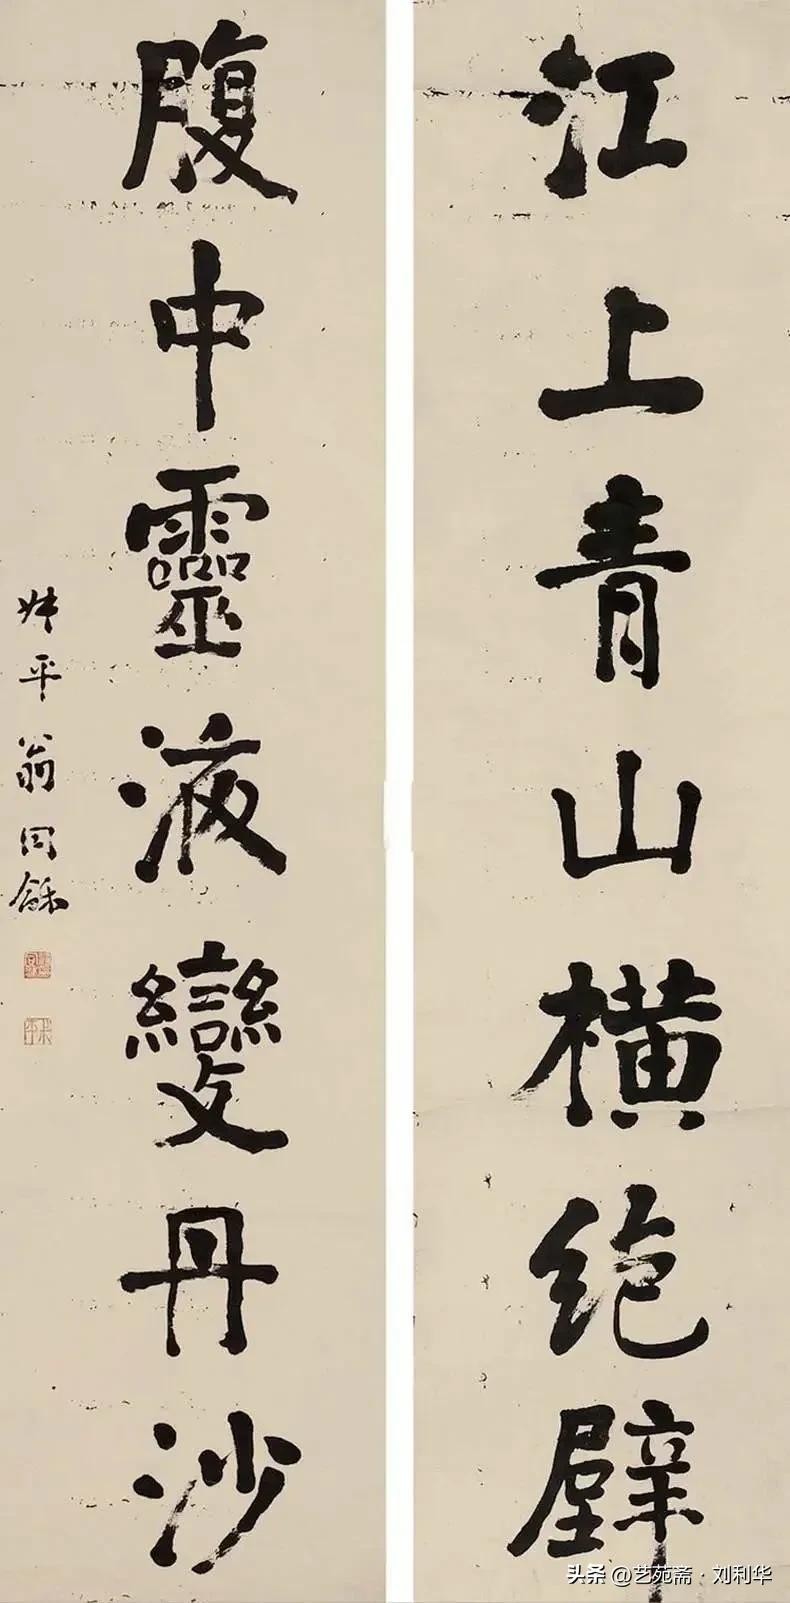 江上青山橫絕壁
腹中靈液變丹沙
叔平翁同龢
头条 @艺苑斋·刘利华